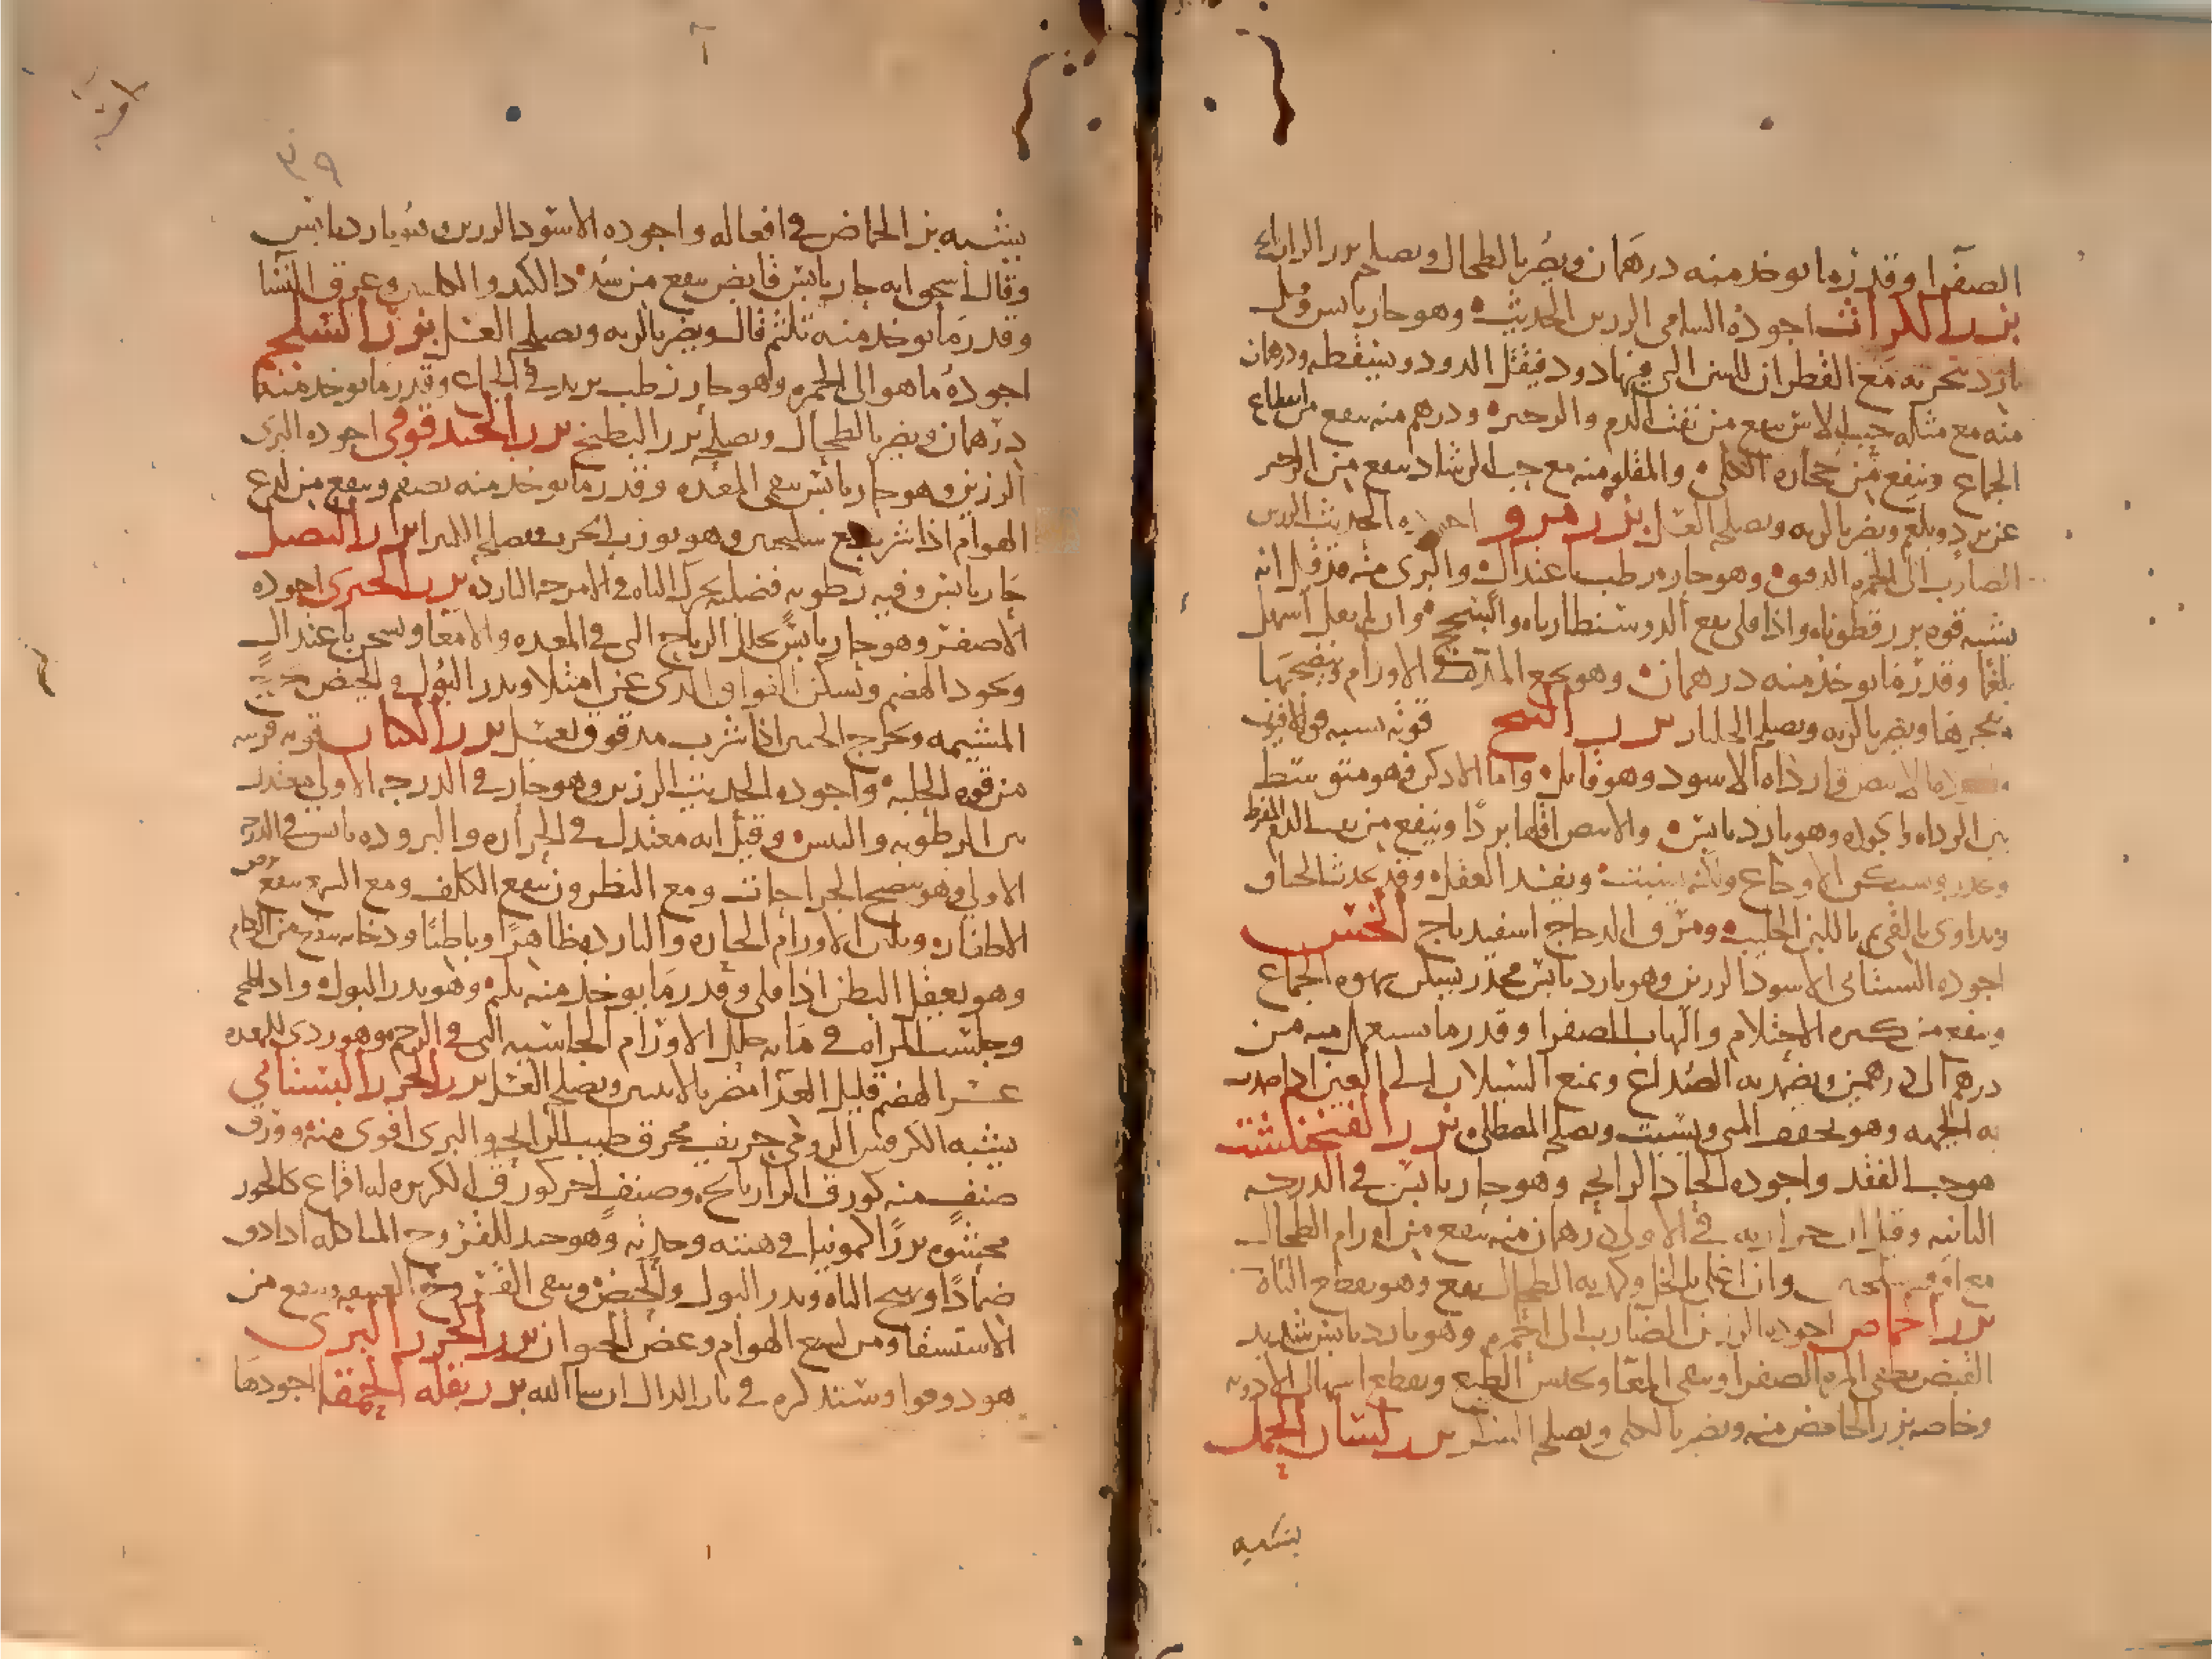 الصفرا وقدر ما يوخذ منه درهمان ويضر بالطحال ويصلحه بزر الرازيانج
بزر الكراث اجوده الشامى الرزين الحديث وهو حار يابس وقيل
بارد تبخر به مع القطران السن التى فيها دود فيقتل الدود ويسقطه ودرهمان
منه مع مثله حب الاس ينفع من نفث الدم والزحير ودرهم منه ينفع من انقطاع
الجماع وينفع من حجارة الكلى والمقلو منه مع حب الرشاد ينفع من الزحير
عن برد وبلغم ويضر بالريه ويصلحه العسل بزر مرو اجوده الحديث الرزين
الضارب الى الحمره الدقيق وهو حار رطب باعتدال والبرى منه قيل انه
يشبه قوه بزر قطونا واذا قلى نفع الدوسنطاريا والسحج وان لم يقل اسهل
بلغما وقدر ما يوخذ منه درهمان وهو يجمع المدة فى الاورام وينضجها
ويفجرها ويضر بالريه ويصلحه الجلنار بزر البنج قوته شبيه قوة الافيون
الابيض واردأه الاسود وهو قاتل واما الادكن فهو متوسط
بين الرداه والجوده وهو بارد يابس والابيض اقلها بردا وينفع من نفث الدم المفرط
ويخدر ويسكن الاوجاع ولكنه يسبت ويفسد العقل وقد يحدث الخناق
ويداوى بالقى باللبن الحليب ومرق الدجاج اسفيدباج الخس
اجوده البستانى الاسود الرزين وهو بارد يابس مخدر يسكن شهوه الجماع
وينفع من كثره الاحتلام والهاب الصفرا وقدر ما يستعمل منه من
درهم الى درهمين ويضمد به الصداع ويمنع السيلان الى العين اذا ضمدت
به الجبهه وهو يجفف المنى ويسبت ويصلحه المصطكى بزر الفنجنكشت
هو حب الفقد واجوده الحاد الرايحه وهو حار يابس فى الدرجه
الثانيه وقيل ان حرارته فى الاولى درهمان منه ينفع من اورام الطحال
مع وان اغلى بالخل وكمد به الطحال نفع وهو يقطع الباه
بزر الحماض اجوده الرزين الضارب الى الحمره وهو بارد يابس شديد
القبض يطفى المره الصفرا ويقوى المعا ويحبس الطبع ويقطع اسهال الادويه
وخاصه بزر الحامض منه ويضر بالكلى ويصلحه السكر بزر لسان الحمل
يشبه
٣٩
يشبه بزر الحماض فى افعاله واجوده الاسود الرزين وهو بارد يابس
وقال اسحق انه حار يابس قابض ينفع من سدد الكبد والكليتين وعرق النسا
وقدر ما يوخذ منه ثلث مثقال ويضر بالريه ويصلحه العسل بزر السلجم
اجوده ما هو الى الحمره وهو حار رطب يزيد فى الجماع وقدر ما يوخذ منه
درهمان ويضر بالطحال ويصلحه بزر البطيخ بزر الحندقوقى اجوده البرى
الرزين وهو حار يابس ينقى المعده وقدر ما يوخذ منه نصف وينفع من لدغ
الهوام اذا شرب مع سكنجبين وهو يورث الجرب ويصلحه الكثيرا بزر البصل
حار يابس وفيه رطوبه فضليه يحرك الباه فى الامزجه البارده بزر الخيرى اجوده
الاصفر وهو حار يابس يحلل الرياح التى فى المعده والامعا ويسخن باعتدال
ويجود الهضم ويسكن الفواق الذى عن امتلا ويدر البول والحيض
المشيمه ويخرج الجنين اذا شرب مدقوق بعسل بزر الكتان قوته قريبه
من قوه الحلبه واجوده الحديث الرزين وهو حار فى الدرجه الاولى معتدل
بين الرطوبه واليبس وقيل انه معتدل فى الحراره والبروده يابس فى الدرجه
الاولى وهو ينضج الجراحات ومع النطرون ينفع الكلف ومع الشمع ينفع برص
الاظفار ويلين الاورام الحاره والبارده ظاهرا وباطنا ودخانه ينفع من الزكام
وهو يعقل البطن اذا قلى وقدر ما يوخذ منه ثلثه وهو يدر البول واذا طبخ
وجلست المراه فى مايه حلل الاورام الجاسيه التى فى الرحم وهو ردى للمعده
عسر الهضم قليل الغذا مضر بالانثيين ويصلحه العسل بزر الجزر البستانى
يشبه الكرفس الرومى حريف محرق طيب الرايحه والبرى اقوى منه وورق
صنف منه كورق الرازيانج وصنف اخر كورق الكزبره له اقماع كالجزر
محشوه بزرا كمونيا فى هيئته وحدته وهو جيد للقروح المتاكله اذا دق
ضمادا ويهيج الباه ويدر البول والحيض وينقى القروح العميقه وينفع من
الاستسقا ومن لسع الهوام وعض الحيوان بزر الجزر البرى
هو دوقوا وسنذكره فى باب الدال ان شا الله بزر بقله الحمقا اجودها